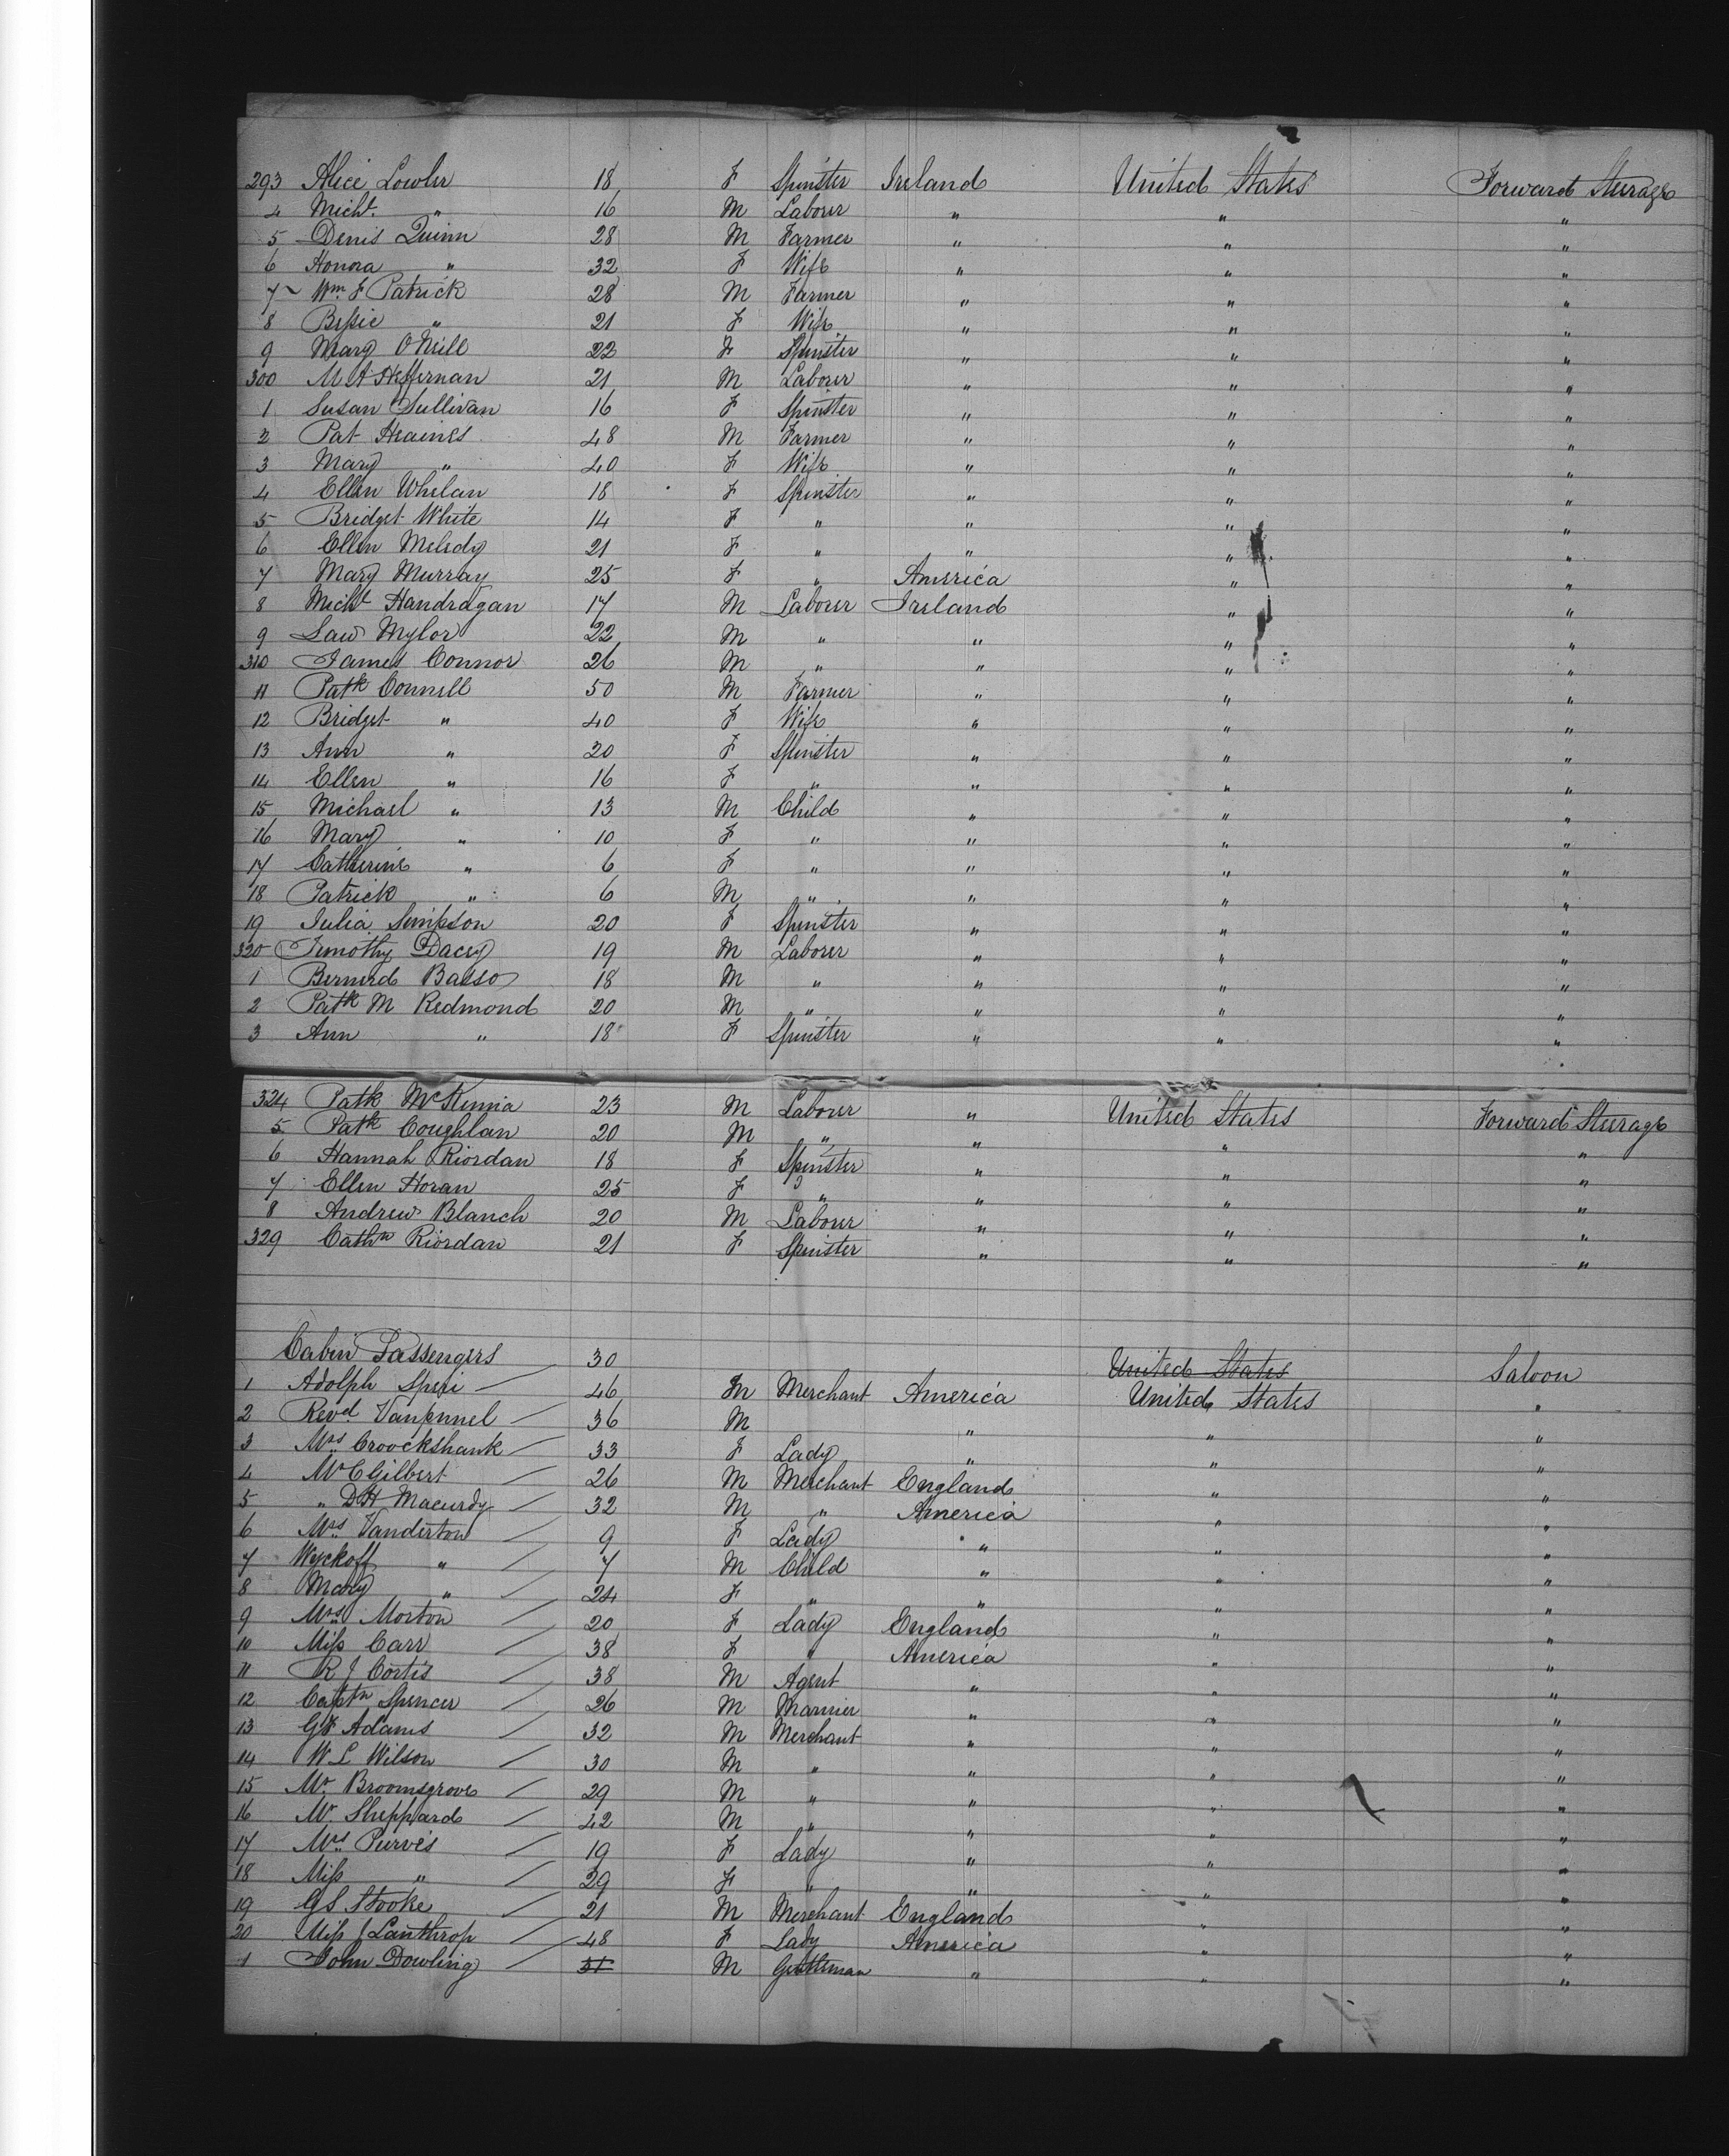 293 Alice Lowler 18 F Spinster Ireland United States Forward Steerage
4 Michl. " 16 M Laborer " " "
5 Denis Quinn 28 M Farmer " " "
6 Honora " 32 F Wife " " "
7 Wm F Patrick 28 M Farmer " " "
8 Bessie " 21 F Wife " " "
9 Mary O'Neill 22 F Spinster " " "
300 M A Heffernan 21 M Laborer " " "
1 Susan Sullivan 16 F Spinster " " "
2 Pat Heaines 48 M Farmer " " "
3 Mary " 40 F Wife " " "
4 Ellen Whelan 18 F Spinster " " "
5 Bridget White 14 F " " " "
6 Ellen Meledy 21 F " " " "
7 Mary Murray 25 F " America " "
8 Michl Handragan 17 M Laborer Ireland " "
9 Law Mylor 22 M " " " "
310 James Connor 26 M " " " "
11 Patk Connell 50 M Farmer " " "
12 Bridget " 40 F Wife " " "
13 Ann " 20 F Spinster " " "
14 Ellen " 16 F " " " "
15 Michael " 13 M Child " " "
16 Mary " 10 F " " " "
17 Catherine " 6 F " " " "
18 Patrick " 6 M " " " "
19 Julia Simpson 20 F Spinster " " "
320 Timothy Dacey 19 M Laborer " " "
1 Bernerd Basso 18 M " " " "
2 Patk M Redmond 20 M " " " "
3 Ann " 18 F Spinster " " "
324 Patk McKenna 23 M Labourer " United States Forward Steerage
5 Patk Coughlan 20 M " " " "
6 Hannah Riordan 18 F Spinster " " "
7 Ellen Horan 25 F " " " "
8 Andrew Blanch 20 M Labourer " " "
329 Cathn Riordan 21 F Spinster " " "
Cabin Passengers 30 United States Saloon
1 Adolph Speri 46 M Merchant America United States "
2 Revd. Vanpennel 36 M " " "
3 Mrs Croockshank 33 F Lady " " "
4 Mr C Gilbert 26 M Merchant England " "
5 " D H Macurdy 32 M " America " "
6 Mrs Vanderton 9 F Lady " " "
7 Wyckoff " 7 M Child " " "
8 Mary " 24 F " " " "
9 Mrs Morton 20 F Lady England " "
10 Miss Carr 38 F " America " "
11 R J Cortis 38 M Agent " " "
12 Captn Spencer 26 M Marnier " " "
13 G F Adams 32 M Merchant " " "
14 W L Wilson 30 M " " " "
15 Mr Broomsgrove 29 M " " " "
16 Mr Sheppard 42 M " " " "
17 Mrs Purves 19 F Lady " " "
18 Miss " 29 F " " " "
19 G S Stooke 21 M Merchant England " "
20 Miss Lanthrop 48 F Lady America " "
1 John Dowling 51 M Gentleman " " "